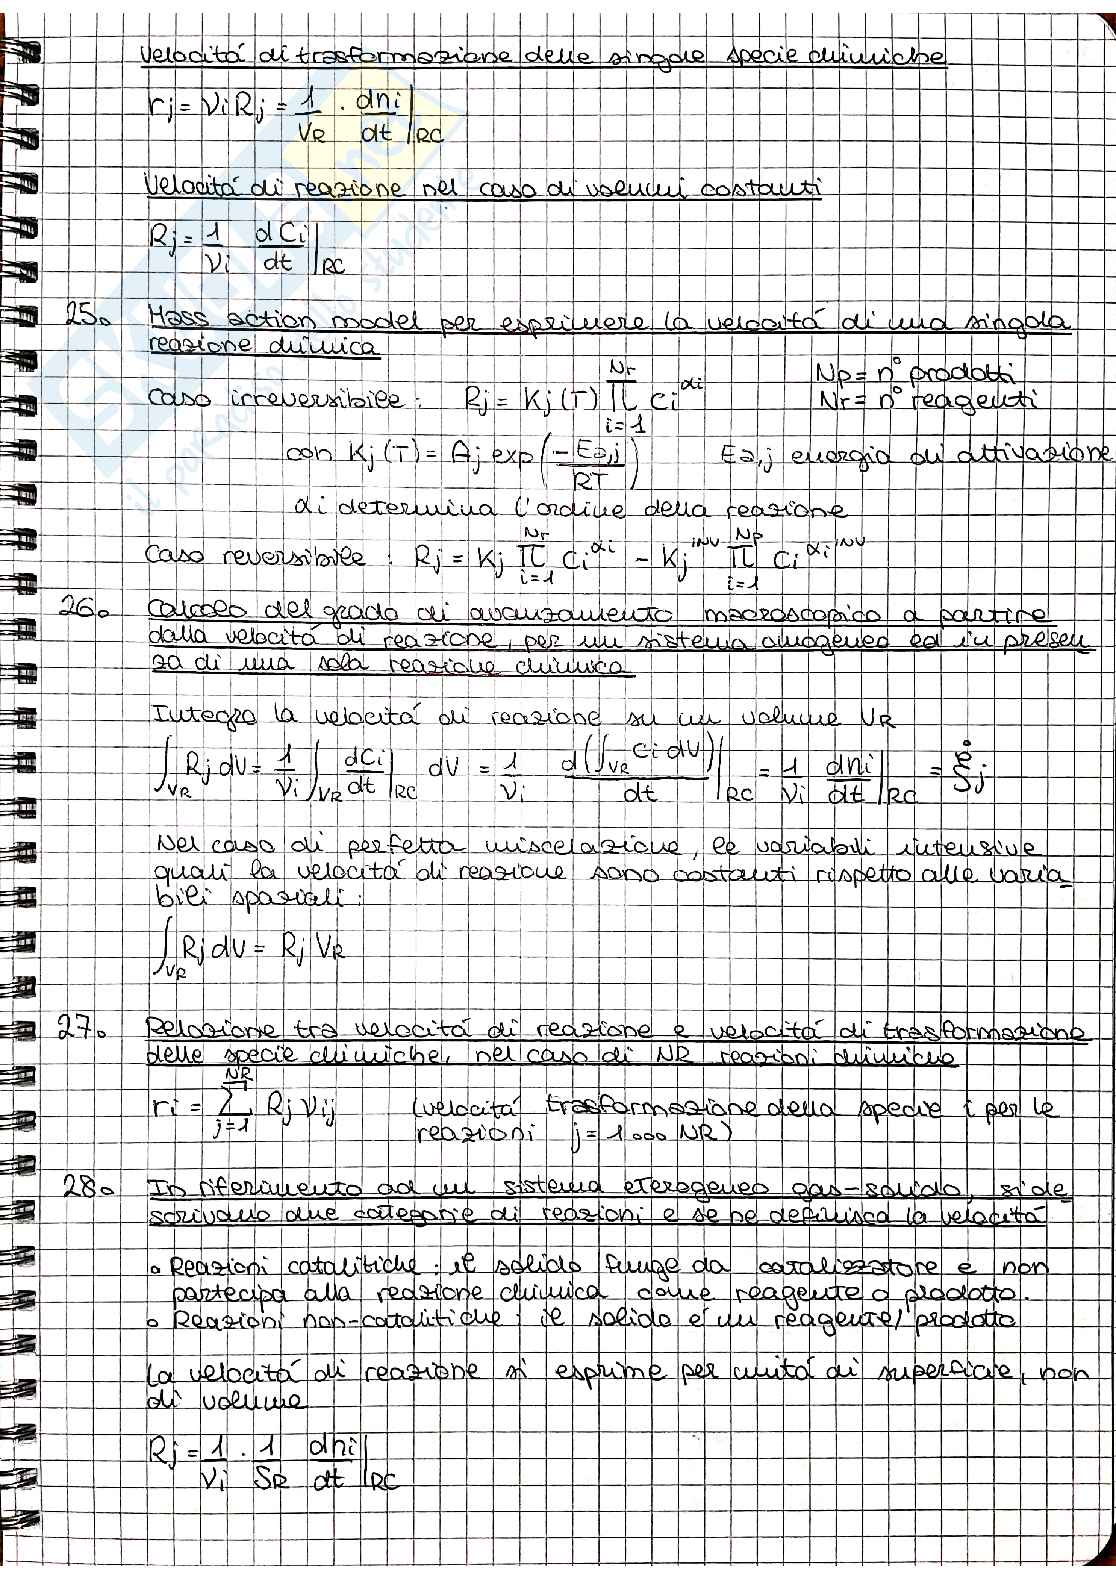 Velocitá di trasformazione delle singole specie chimiche
rj = νi Rj = 1/VR · dni/dt |RC
Velocitá di reazione nel caso di volumi costanti
Rj = 1/νi dCi/dt |RC
25. Mass action model per esprimere la velocitá di una singola
reazione chimica
Np = n° prodotti
Caso irreversibile: Rj = Kj(T) ∏_{i=1}^{Nr} Ci^αi Nr = n° reagenti
con Kj(T) = Aj exp(-Ea,j/RT) Ea,j energia di attivazione
αi determina l'ordine della reazione
Caso reversibile: Rj = Kj ∏_{i=1}^{Nr} Ci^αi - Kj^INV ∏_{i=1}^{Np} Ci^αi^INV
26. Calcolo del grado di avanzamento macroscopico a partire
dalla velocitá di reazione, per un sistema omogeneo ed in presen
za di una sola reazione chimica
Integro la velocitá di reazione su un volume VR
∫_VR Rj dV = 1/νi ∫_VR dCi/dt |RC dV = 1/νi d(∫_VR Ci dV)/dt |RC = 1/νi dni/dt |RC = ξ̇j
Nel caso di perfetta miscelazione, le variabili intensive
quali la velocitá di reazione sono costanti rispetto alle varia-
bili spaziali:
∫_VR Rj dV = Rj VR
27. Relazione tra velocitá di reazione e velocitá di trasformazione
delle specie chimiche, nel caso di NR reazioni chimiche
ri = ∑_{j=1}^{NR} Rj νij (velocitá trasformazione della specie i per le
reazioni j = 1...NR)
28. In riferimento ad un sistema eterogeneo gas-solido, si de
scrivano due categorie di reazioni e se ne definisca la velocitá
• Reazioni catalitiche: il solido funge da catalizzatore e non
partecipa alla reazione chimica come reagente o prodotto.
• Reazioni non-catalitiche: il solido é un reagente/prodotto
La velocitá di reazione si esprime per unitá di superficie, non
di volume
Rj = 1/νi · 1/SR dni/dt |RC
il paradiso dello studente